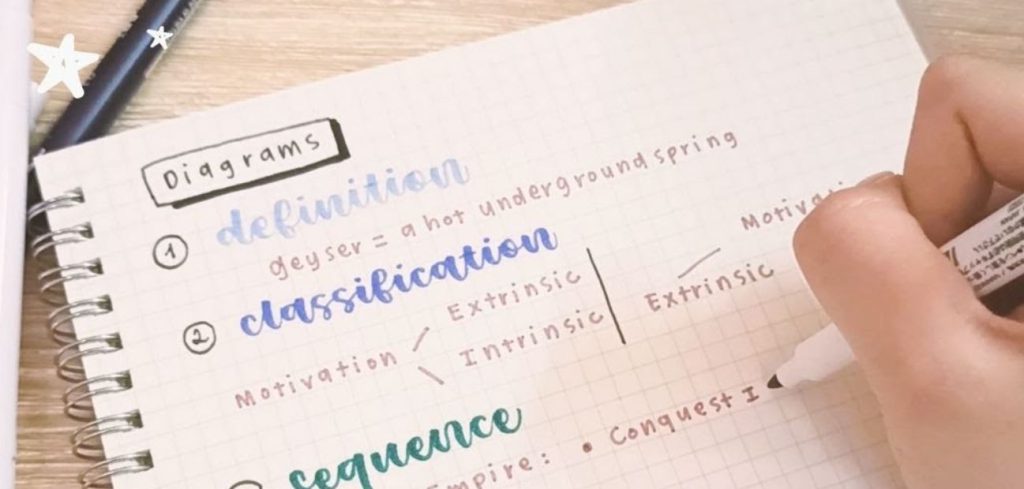 Diagrams
① definition
geyser = a hot underground spring
② classification
Motivation
Extrinsic
Intrinsic
Extrinsic
sequence
• Conquest I